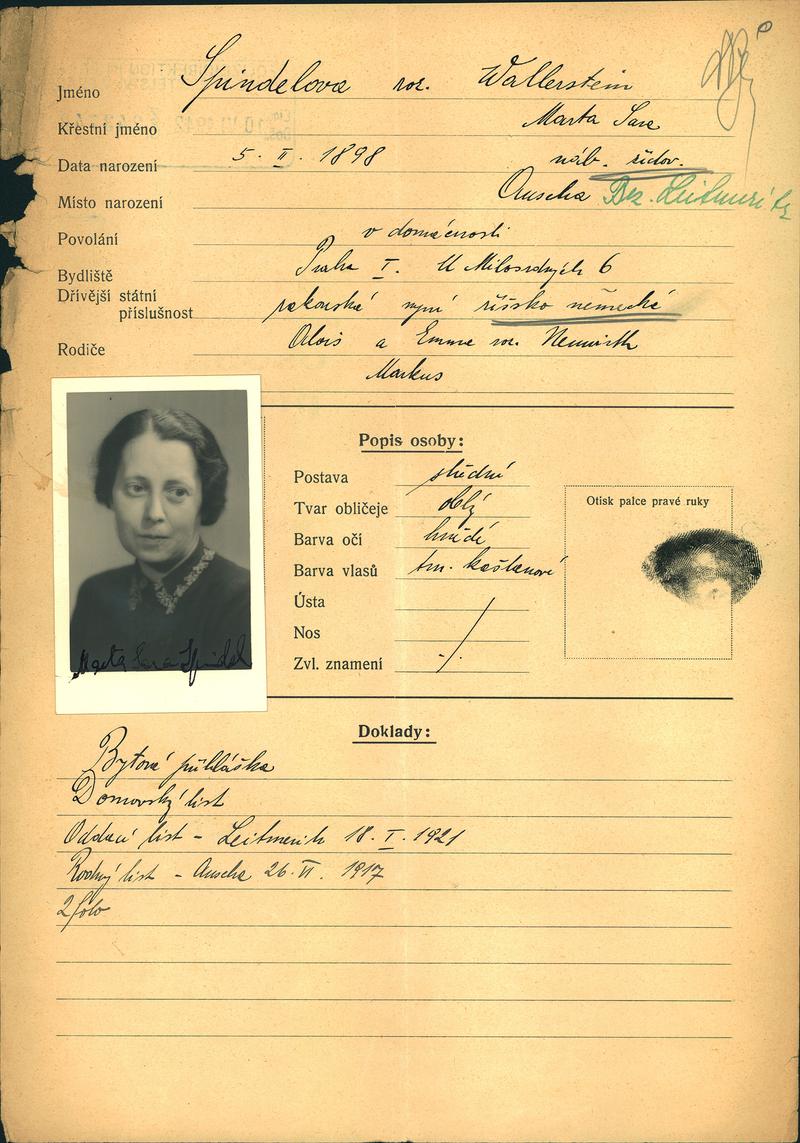 Jméno Spindelova roz. Wallerstein
Křestní jméno Marta Sara
Data narození 5. II. 1898 náb. židov.
Místo narození Auscha Bez. Leitmeritz
Povolání v domácnosti
Bydliště Praha I. U Milosrdných 6
Dřívější státní
příslušnost rakouská nyní říšsko německá
Rodiče Alois a Emma roz. Neuwirth
Markus
Popis osoby:
Postava střední
Tvar obličeje oblý
Barva očí hnědé
Barva vlasů tm. kaštanové
Ústa
Nos
Zvl. znamení
Otisk palce pravé ruky
Marta Sara Spindel
Doklady:
Bytová přihláška
Domovský list
Oddací list - Leitmeritz 18. I. 1921
Rodný list - Auscha 26. VI. 1917
2 foto